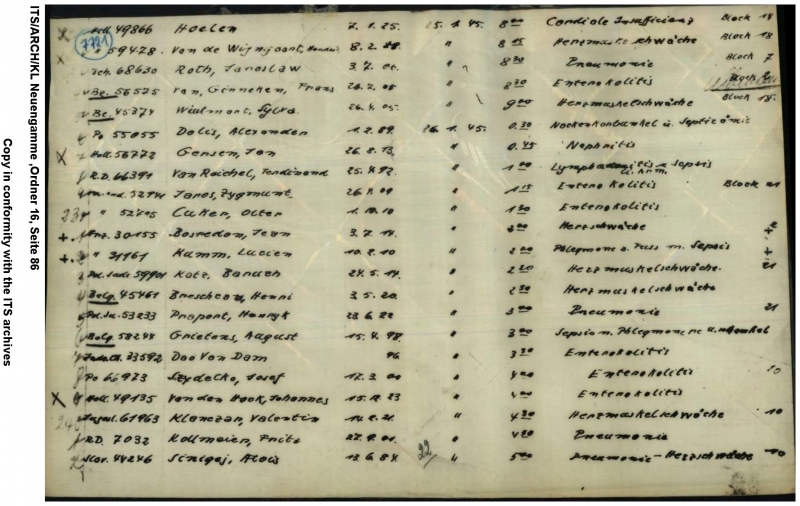 ITS/ARCH/KL Neuengamme ,Ordner 16, Seite 86
Copy in conformity with the ITS archives
7791
Holl. 49866 Hoelen 7. 1. 25. 25. 1. 45. 8 00 Cardiale Insufficienz Block 18
59478 Von de Wijngaart, 8. 2. " 8 15 Herzmuskelschwäche Block 18
68630 Roth, Jaroslaw 3. 7. " 8 30 Pneumonie Block 7
Be. 56575 Van Genneken, Frans 26. 2. 05 " 8 30 Enterokolitis Block
Be. 45374 Wielmart, Sylva. 26. 4. 05. " 9 00 Herzmuskelschwäche Block 18.
Po 55055 Dolis, Alexander 1. 2. 09. 26. 1. 45. 0.30 Nackenkarbunkel u. Septicämie
X Holl. 56772 Gensen, Jan 26. 8. 13. " 0.45 Nephritis
R.D. 66391 Van Reichel, Ferdinand 25. 4. 92. " 1 00 Lymphadenitis u. Sepsis
u. Arm.
52741 Janos, Zygmunt 26. 4. 09 " 1 15 Entero Kolitis Block 21
23 " 52705 Cuker, Olter 1. 10. 10 " 1 30 Enterokolitis
+ Frz. 30155 Bosredon, Jean 3. 7. 14. " 2 00 Herzschwäche
+ " 31161 Humm, Lucien 10. 2. 10 " 2 00 Phlegmone a. Fuss m. Sepsis
Pol. Jude 59901 Katz, Baruch 24. 5. 14. " 2 20 Herzmuskelschwäche. 21
Belg. 45461 Brescheau, Henri 3. 5. 20. " 2 30 Herzmuskelschwäche
Pol. Ju. 53233 Prapart, Henryk 23. 6. 22 " 3 00 Pneumonie 21
Belg. 58248 Grietens, August 15. 4. 98. " 3 00 Sepsis n. Phlegmone
33592 Doo Van Dam 96 " 3 30 Enterokolitis
Po 66973 Szydelko, Josef 12. 3. 00 " 4 00 Enterokolitis 10
X Holl. 49135 Van den Hoek, Johannes 15. 12. 23 " 4 00 Enterokolitis
Jugosl. 61963 Klanczar, Valentin 14. 2. 21. " 4 30 Herzmuskelschwäche 10
R.D. 7032 Kollmeier, Fritz 27. 9. 01. " 4 30 Pneumonie
Slov. 44246 Sinigoj, Alois 13. 6. 84. 22 " 5 00 Pneumonie – Herzschwäche 10